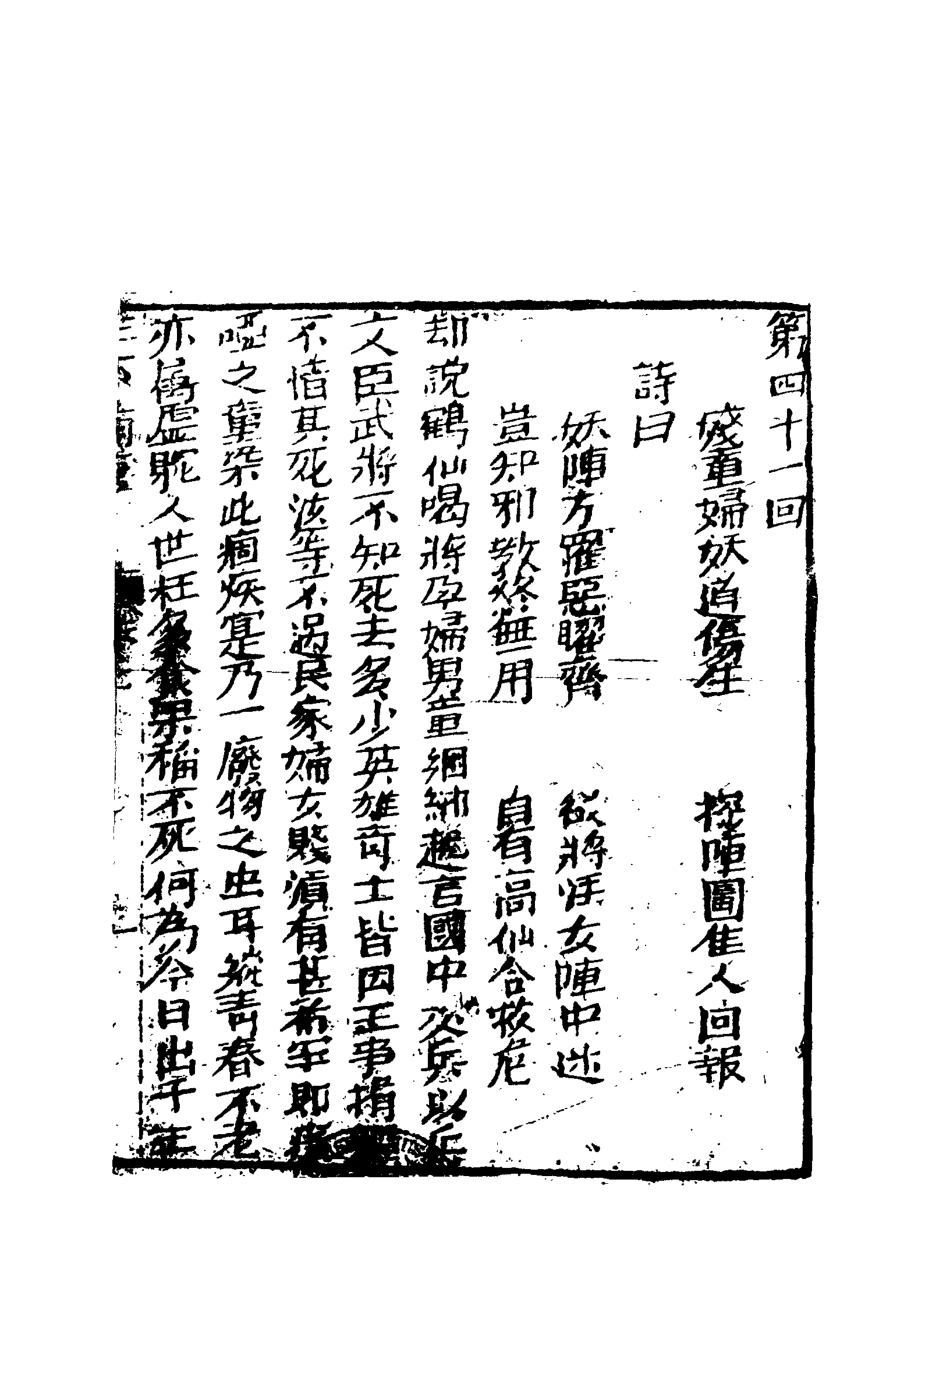 第四十一回
殘童婦妖道傷生　探陣圖佳人回報
詩曰
妖陣方羅惡曜齊　欲將妊女陣中迷
豈知邪教終無用　自有高仙合救危
却說鶴仙喝將孕婦男童綑綁趙言國中次兵以兵
文臣武將不知死去多少英雄奇士皆因王事捐
不惜其死該等不過民家婦女賤湏有甚希罕即
啞之童染此痼疾寔乃一廢物之虫耳縱靑春不老
亦屬虛䏢人世枉食果稱不死何為今日出千年